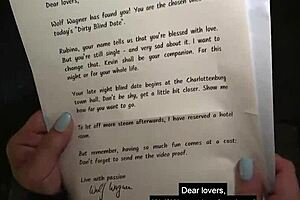 Dear lovers,
Wolf Wagner has found you! You are the chosen
today's "Dirty Blind Date".
Rubina, your name tells us that you're blessed with love.
But you're still single - and very sad about it. I want to
change that. Kevin shall be your companion. For this
night or for your whole life.
Your late night blind date begins at the Charlottenburg
town hall. Don't be shy, get a little bit closer. Show me
how far you want to go.
To let off more steam afterwards, I have reserved a hotel
room.
But remember, having so much fun comes at a cost:
Don't forget to send me the video proof.
Live with passion
Wolf Wagner
Dear lovers,